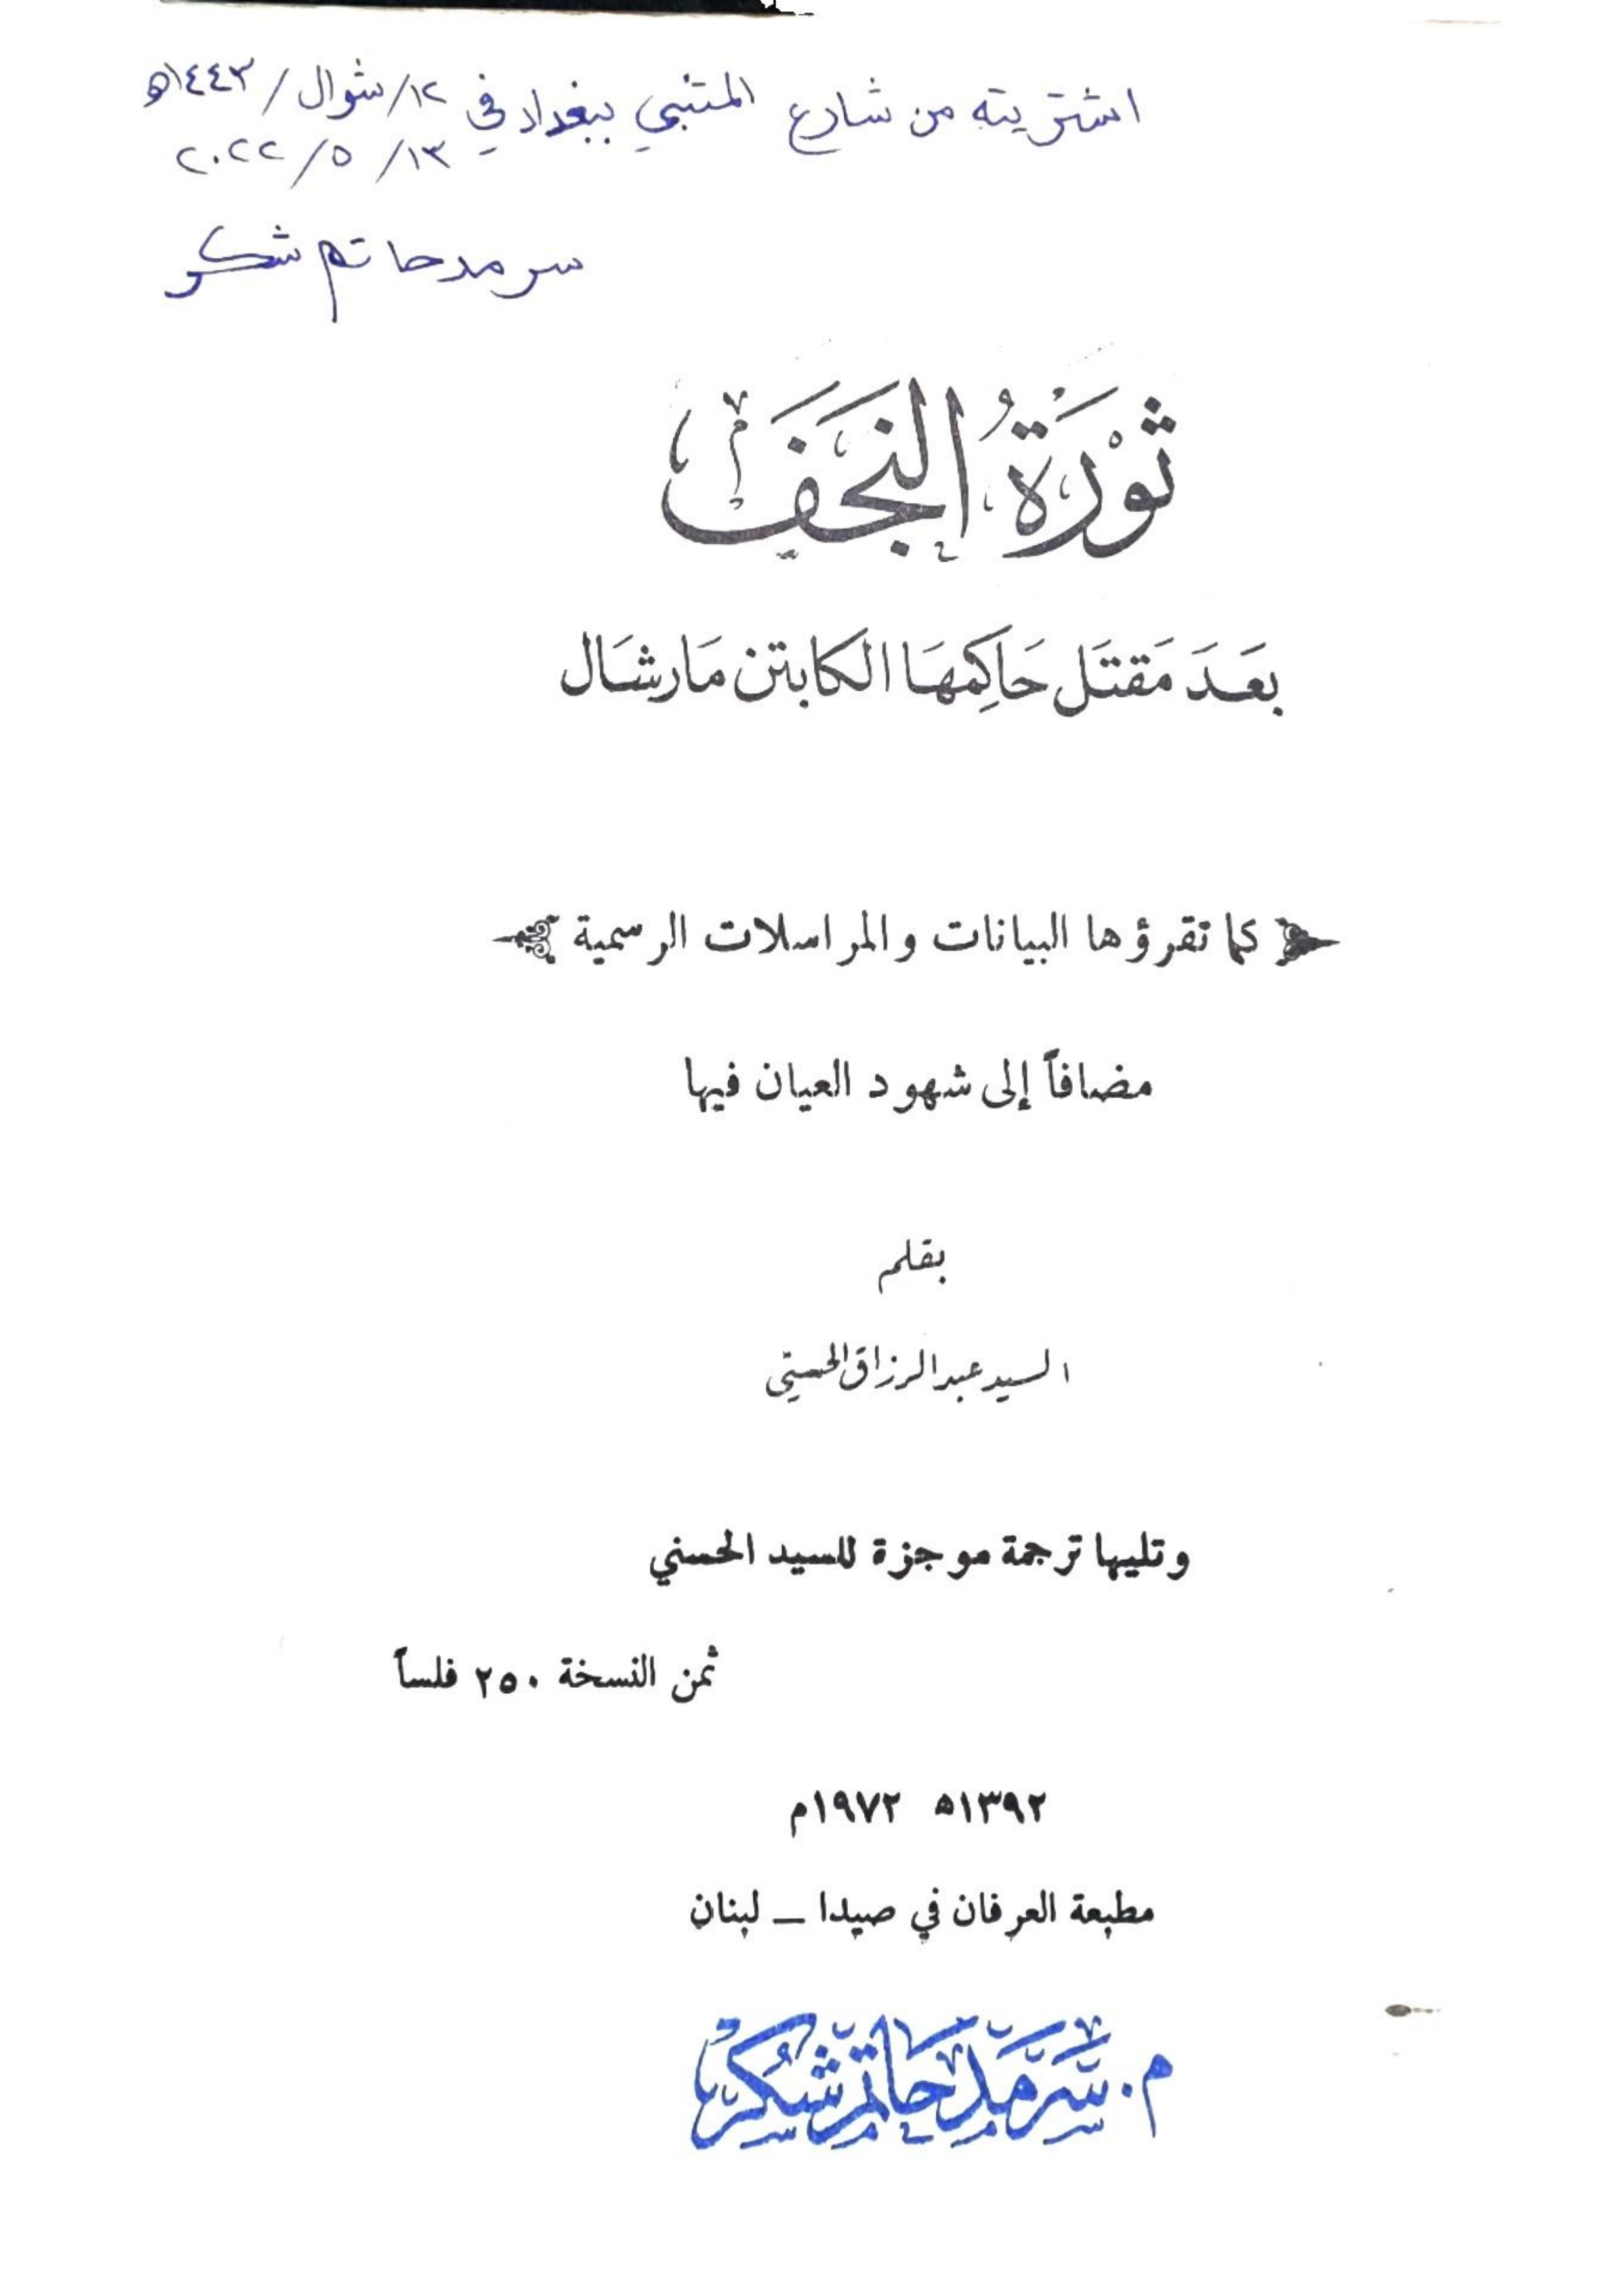 اشتريته من شارع المتنبي ببغداد في ١٢/شوال/١٤٤٣ه
١٣/٥/٢٠٢٢
سرمد حاتم شكر
ثَوْرَةُ النَجَفَ
بعَدَ مَقتَل حَاكِمهَا الكابتن مَارشَال
كما تقرؤها البيانات والمراسلات الرسمية
مضافاً إلى شهود العيان فيها
بقلم
السيد عبد الرزاق الحسني
وتليها ترجمة موجزة للسيد الحسني
ثمن النسخة ٢٥٠ فلساً
١٣٩٢ه ١٩٧٢م
مطبعة العرفان في صيدا – لبنان
م. سَرمَد حَاتم شُكر